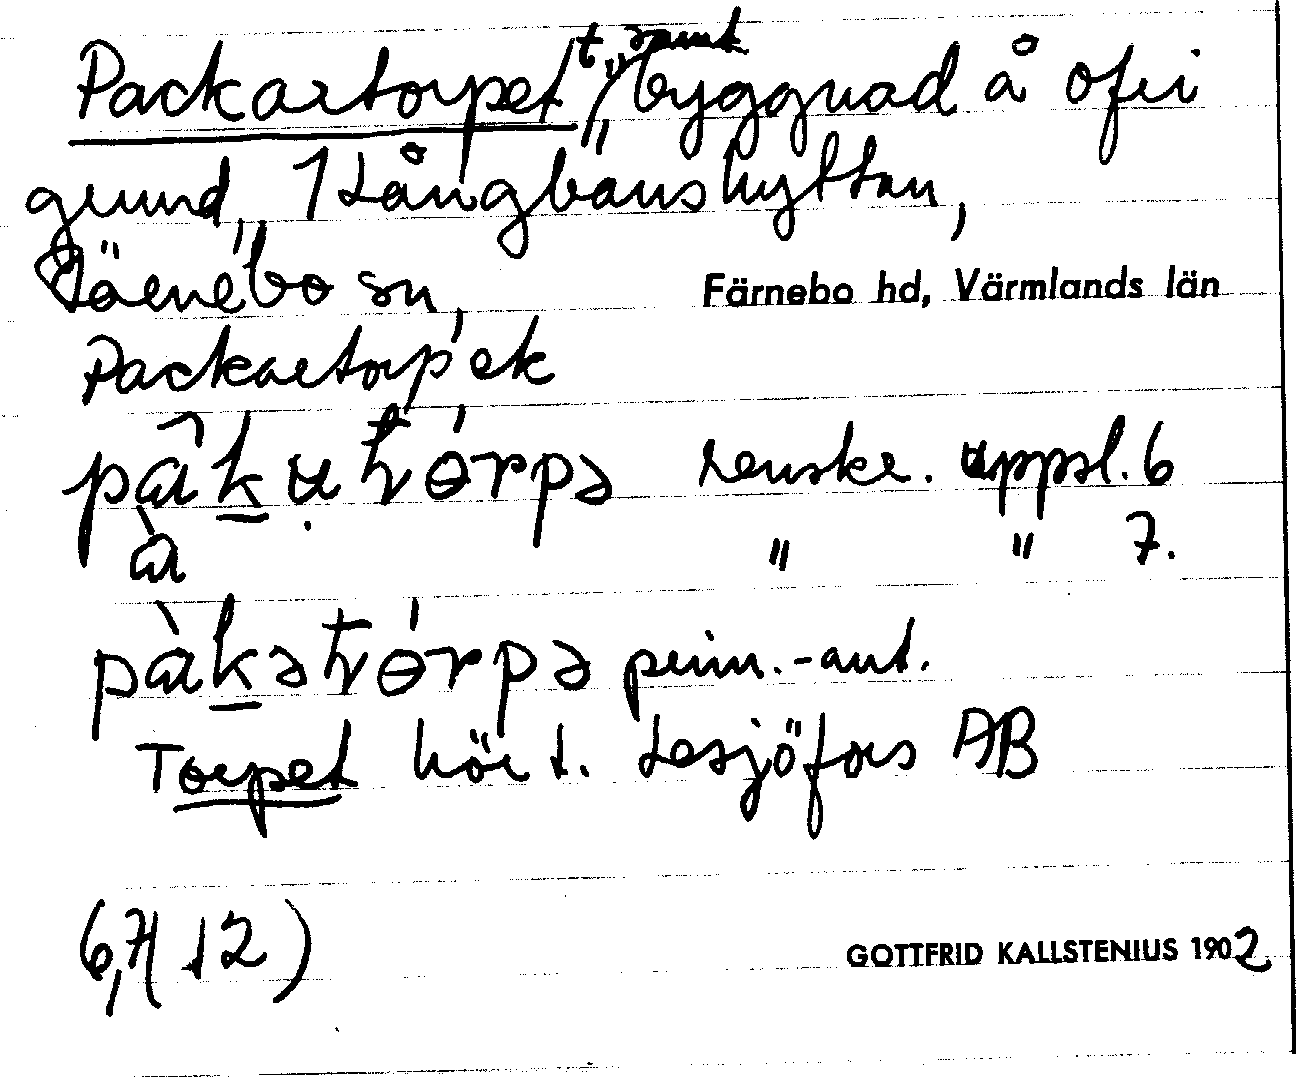 Packartorpet, t., samt
"byggnad å ofri
grund", 1 Långbanshyttan,
Färnebo sn, Färnebo hd, Värmlands län
Packartorp'ek
renskr. uppsl. 6
" " 7.
prim.-ant.
Torpet hör t. Lesjöfors AB
(6,7(12)
GOTTFRID KALLSTENIUS 1902